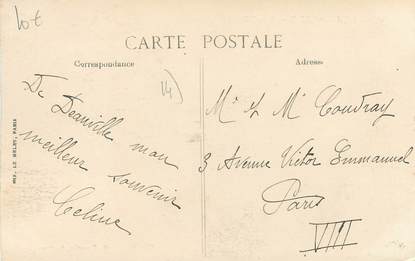 lot
CARTE POSTALE
Correspondance
Adresse
14)
De Deauville mon
meilleur souvenir
Celine
Mr & Me Coudray
3 Avenue Victor Emmanuel
Paris
VIII
IMP. LE DELEY, PARIS